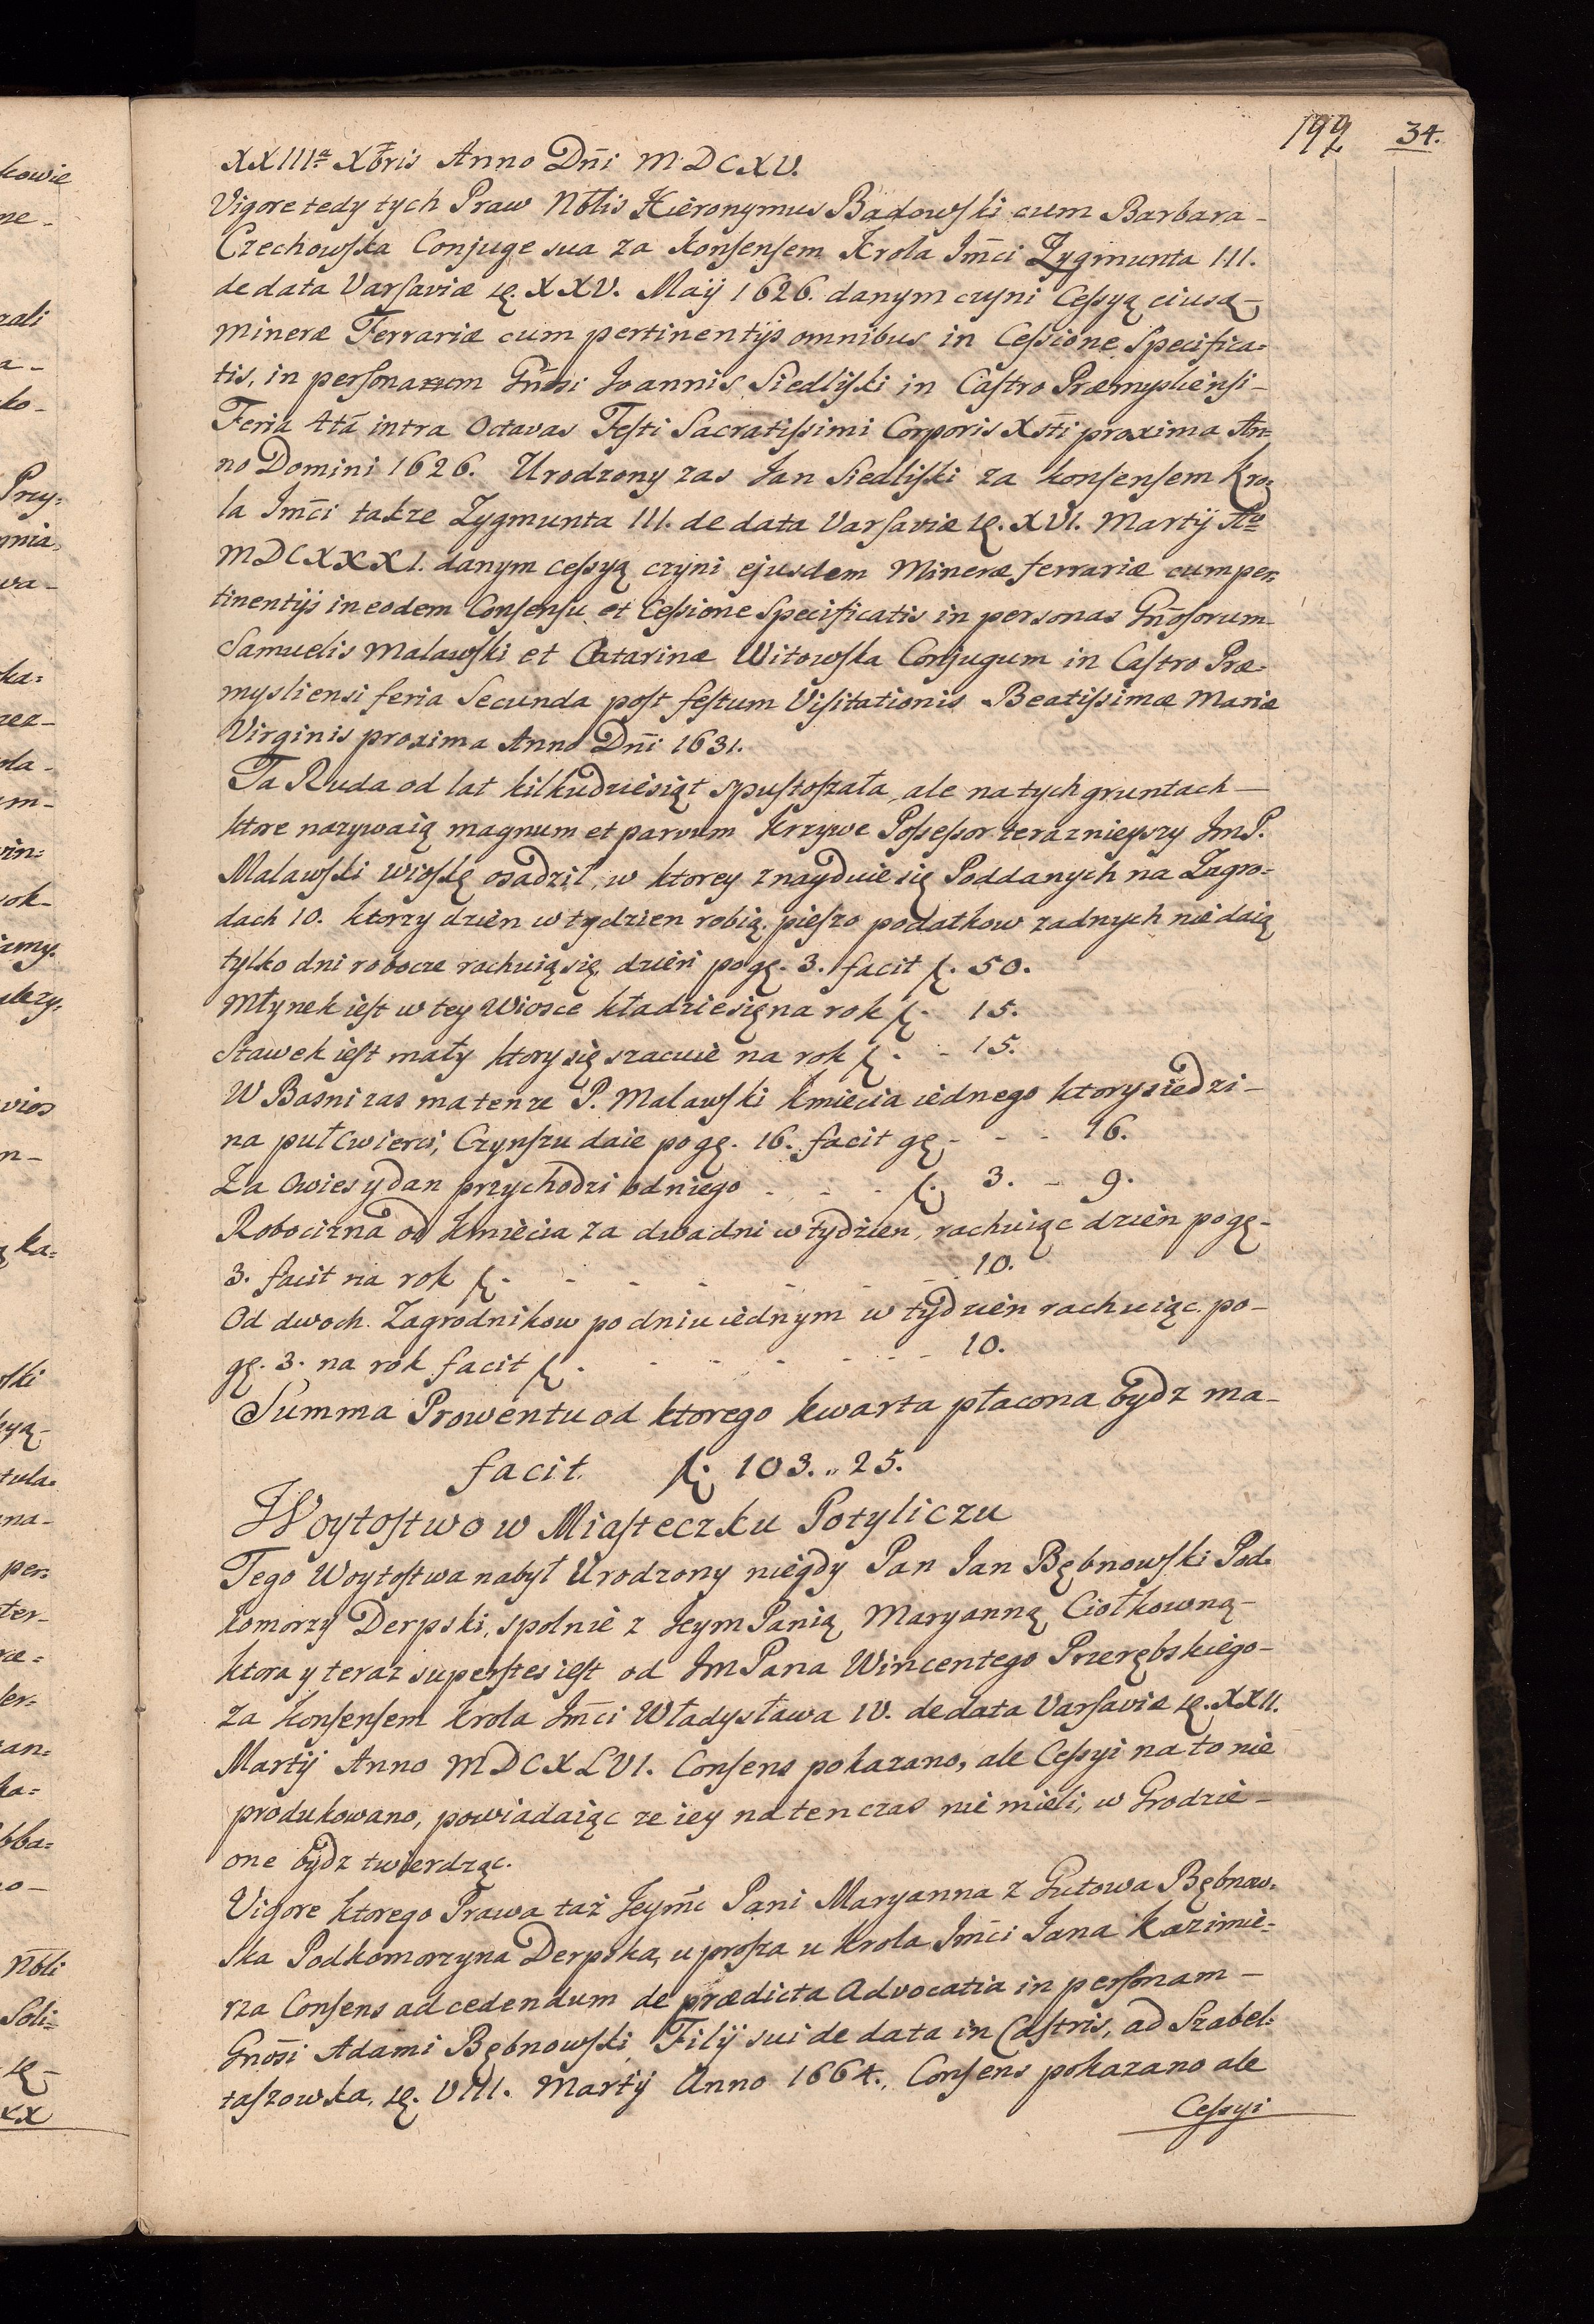 192 34.
XXIIIª Xbris Anno Dñi MDCXV.
Vigore tedy tych Praw Nbtis Hieronymus Badowſki cum Barbara-
Czechowſka Conjuge sua za konſenſem Krola Jm̃ci Zygmunta III.
de data Varſaviæ die XXV. Maÿ 1626. danym czyni Ceſsyą eiusd-
Mineræ Ferrariæ cum pertinentÿs omnibus in Ceſsione Specifica=
tis, in perſonam Gñosi Joannis Siedliſki in Caſtro Præmysliensi-
Feria 4tã intra Octavas Feſti Sacratiſsimi Corporis Xsti proxima An=
no Domini 1626. Urodzony zas Jan Siedliſki za konſenſem Kro=
la Jm̃ci takze Zygmunta III. de data Varſaviæ die XVI. Martÿ Aº
MDCXXXI. danym ceſsyą czyni ejusdem Mineræ ferrariæ cum per=
tinentÿs in eodem Conſenſu et Ceſsione Specificatis in personas Gñoſorum
Samuelis Malawſki et Catarinæ Witowſka Conjugum in Caſtro Præ=
mysliensi feria Secunda poſt feſtum Viſitationis Beatiſsimæ Mariæ
Virginis proxima Anno Dñi 1631.
Ta Ruda od lat kilkudzieſiąt spuſtoſzała, ale na tych gruntach-
ktore nazywaią magnum et parvum Krzywe Poſseſsor terazniejszy JmP.
Malawſki wioſkę osadził, w ktorey znayduie się Poddanych na Zagro=
dach 10. ktorzy dzien w tydzien robią. pieſzo podatkow zadnych nie daią
tylko dni robocze rachuią się, dzień po gr. 3. facit fl. 50.
Młynek ieſt w tey Wiosce kładzie się na rok fl. 15.
Stawek ieſt mały ktory się szacuie na rok fl. - 15.
W Basni zas ma tenze P. Malawſki Kmiecia iednego ktory siedzi-
na puł cwierci, Czynſzu daie po gr. 16. facit gr. - - - 16.
Za Owies y dan przychodzi od niego - - - fl. 3. - 9.
Robocizna od Kmiecia za dwa dni w tydzien, rachuiąc dzień po gr-
3. facit na rok fl. - - - - - - 10.
Od dwoch Zagrodnikow po dniu iednym w tydzień rachuiąc po-
gr. 3. na rok facit fl. - - - - - - 10.
Summa Prowentu od ktorego kwarta płacona bydz ma-
facit. fl. 103. „ 25.
Woytoſtwo w Miaſteczku Potyliczu
Tego Woytoſtwa nabył Urodzony niegdy Pan Jan Bębnowſki Pod=
komorzy Derpski, spolnie z Jeym Panią Maryanną Ciołkowną-
ktora y teraz superſtes ieſt od Jm Pana Wincentego Przerębskiego-
za Konſenſem Krola Jm̃ci Władysława IV. de data Varſaviæ die XXII.
Martÿ Anno MDCXLVI. Conſens pokazano, ale Ceſsyi na to nie
produkowano, powiadaiąc ze iey na ten czas nie mieli, w Grodzie-
one bydz twierdząc.
Vigore ktorego Prawa taż Jeym̃c Pani Maryanna z Gutowa Bębnow=
ska Podkomorzyna Derpska, uproſza u Krola Jm̃ci Jana Kazimie=
rza Conſens ad cedendum de prædicta Advocatia in perſonam-
Gnõsi Adami Bębnowſki Filÿ sui de data in Caſtris, ad Szabel=
taſzowka, die VIII. Martÿ Anno 1664., Conſens pokazano ale
Ceſsyi